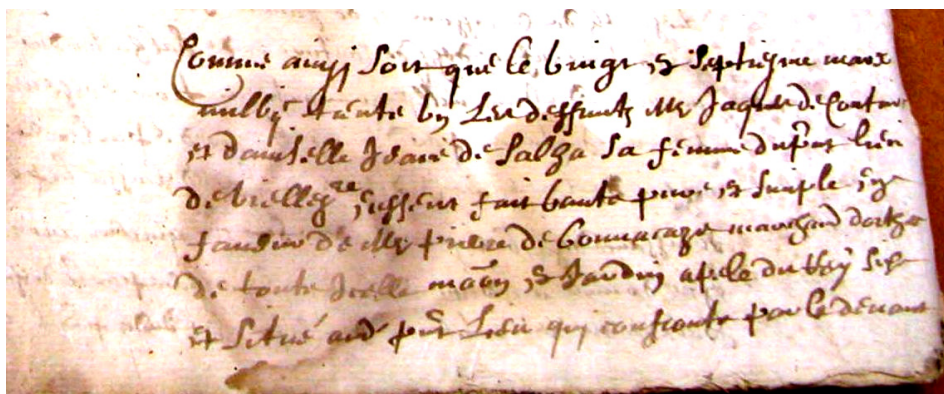 Comme ainsy soit que le vingt et septiesme mars
mil vjc trente ung Les deffuntz Mr Jaques de
et damlle Jeane de Salha sa femme du pnt lieu
de eussent fait vante pure et simple en
faveur de Mr pierre de marchand dorthes
de toute Icelle maon et Jardin apele du sise
et situé aud pnt Lieu quy confronte par le devant